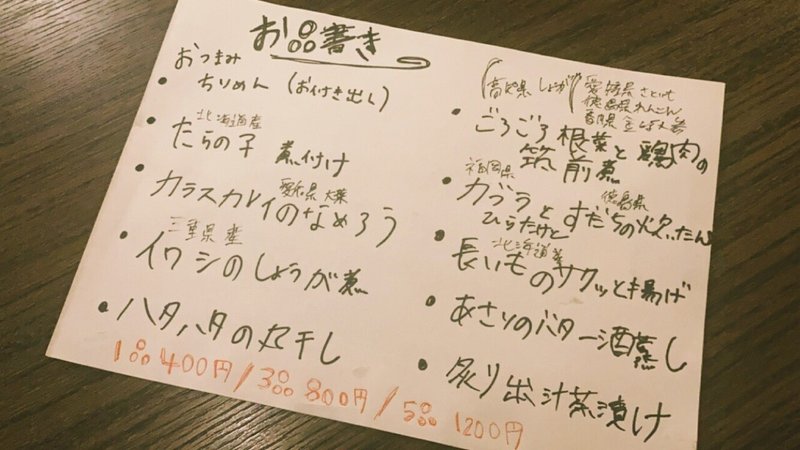 お品書き
おつまみ
• ちりめん (お付き出し)
北海道産
• たらの子 煮付け
愛知県 大葉
• カラスカレイのなめろう
三重県産
• イワシのしょうが煮
• ハタハタの丸干し
(高知県 しょうが)
愛媛県 さといも
徳島県 れんこん
香川県 金時人参
• ごろごろ根菜と鶏肉の
筑前煮
福岡県 徳島県
• カブラとすだちの炊いたん
ひらたけと
北海道産
• 長いものサクッと揚げ
• あさりのバター酒蒸し
• 炙り出汁茶漬け
1品400円/3品800円/5品1200円